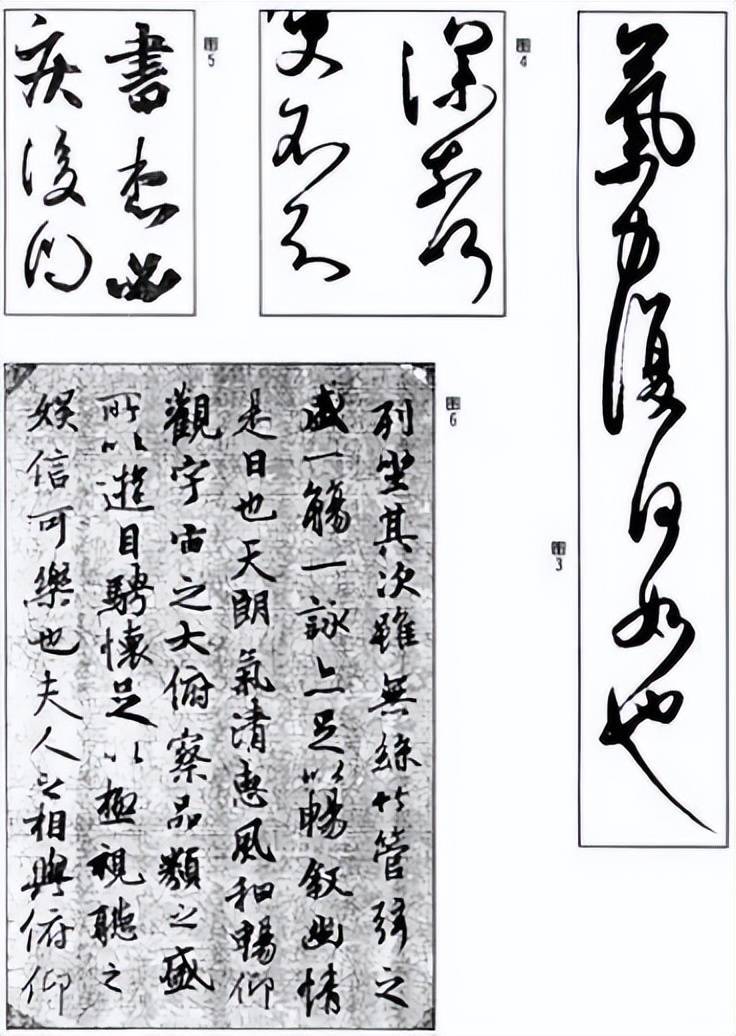 氣力復何如也
图3
深
不
图4
書想必
疾後
图5
列坐其次雖無絲竹管弦之
盛一觴一詠亦足以暢叙幽情
是日也天朗氣清惠風和暢仰
觀宇宙之大俯察品類之盛
所以遊目騁懷足以極視聽之
娛信可樂也夫人之相與俯仰
图6